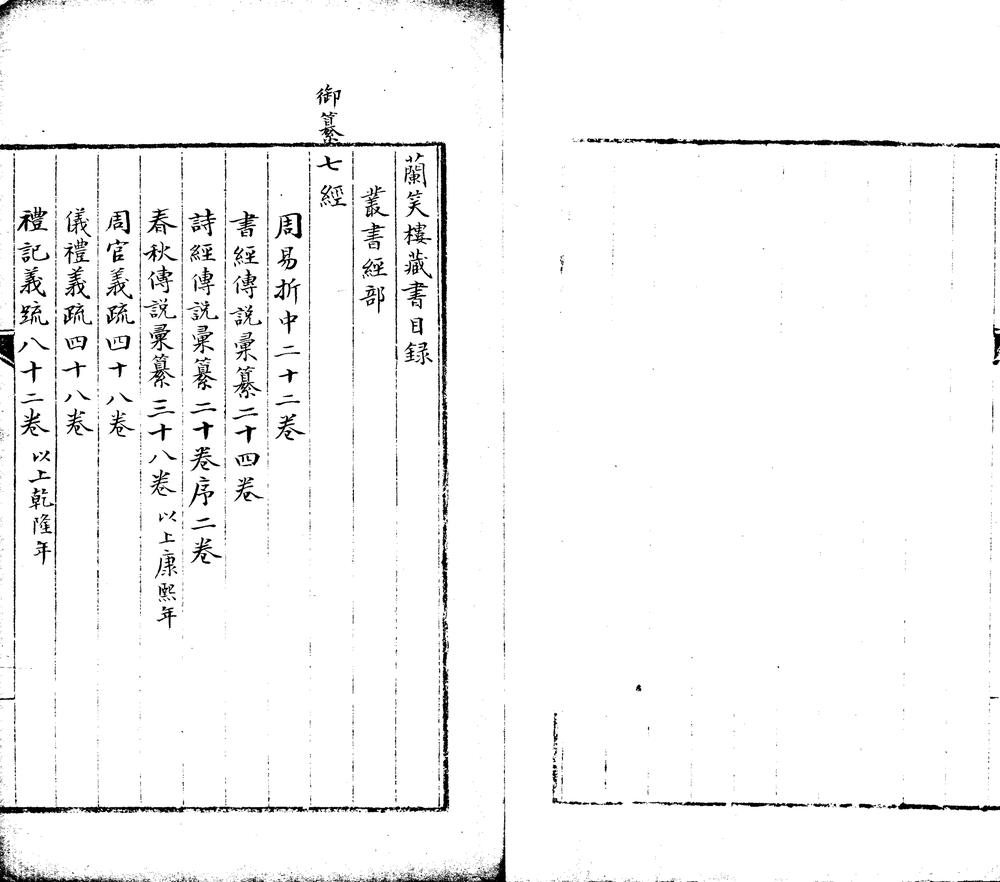 蘭笑樓藏書目録
叢書經部
御纂七經
周易折中二十二卷
書經傳説彙纂二十四卷
詩經傳説彙纂二十卷序二卷
春秋傳説彙纂三十八卷以上康熙年
周官義疏四十八卷
儀禮義疏四十八卷
禮記義疏八十二卷以上乾隆年